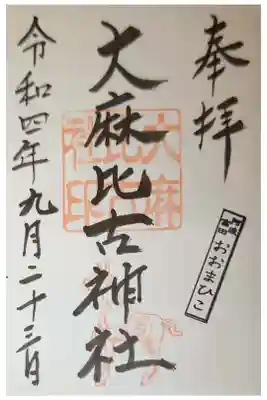 奉拝
おおまひこ
大麻比古神社
大麻
比古
社印
令和四年九月二十三日